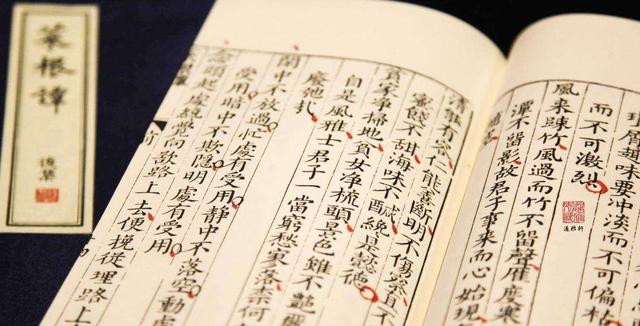 菜根譚
瑣屑趣味要冲淡而不可偏枯
而不可激烈
風来踈竹風過而竹不留聲雁度寒
潭不留影故君子事来而心始現
清能有容仁能善斷明不傷察直不
蜜餞不甜海味不醎纔是懿德
貧家净掃地貧女净梳頭景色雖不艷
自是風雅士君子一當窮愁寥落奈何
廢弛扎
閒中不放過忙處有受用静中不落空動處
受用暗中不欺隱明處有受用
念頭起處纔覺向欲路上去便挽從理路上